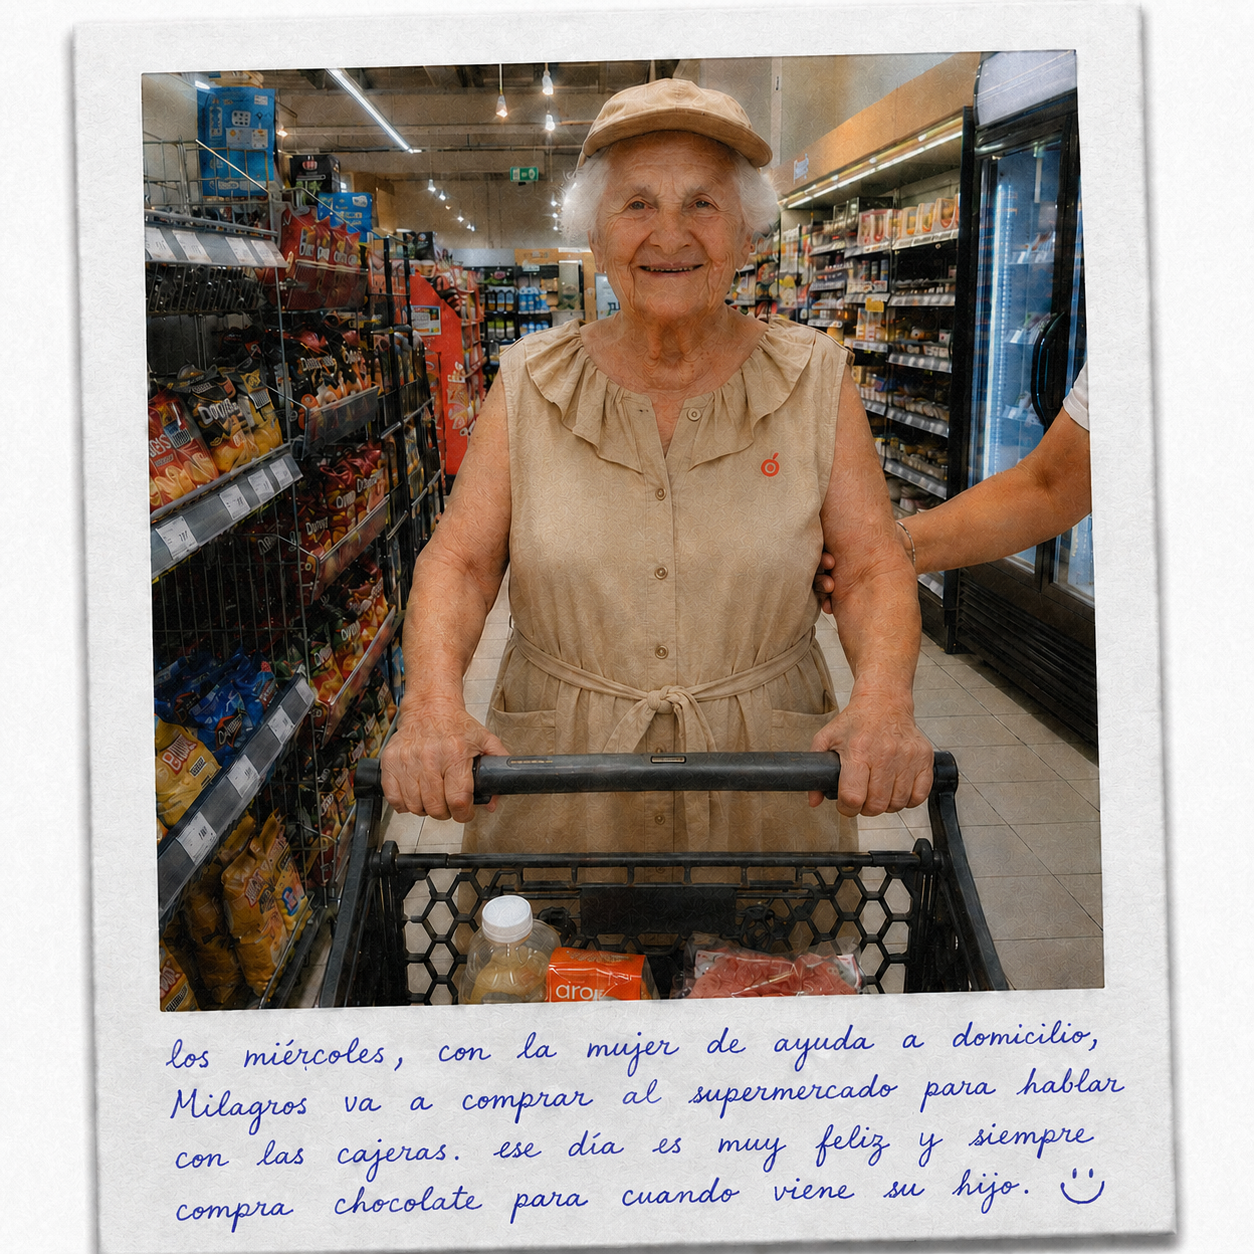 Doritos
aro
los miércoles, con la mujer de ayuda a domicilio,
Milagros va a comprar al supermercado para hablar
con las cajeras. ese día es muy feliz y siempre
compra chocolate para cuando viene su hijo.